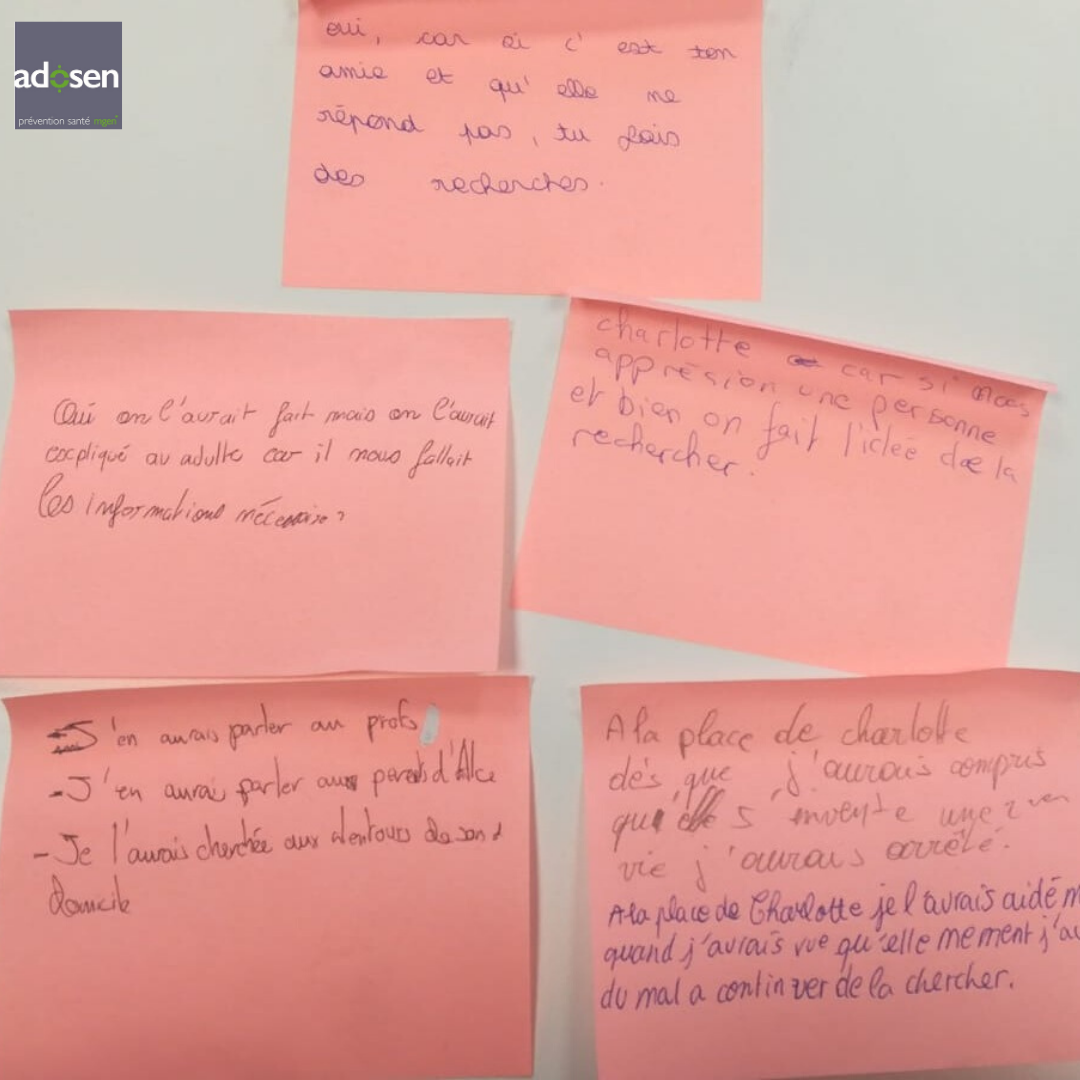 adosen
prévention santé mgen
oui, car si c'est ton
amie et qu'elle ne
répond pas, tu fais
des recherches.
Oui on l'aurait fait mais on l'aurait
expliqué au adulte car il nous fallait
les informations nécessaire
charlotte car si nous
apprésion une personne
et bien on fait l'idée de la
rechercher.
J'en aurais parler au profs
- J'en aurai parler aux parents d'Alice
- Je l'aurais cherchée aux alentours de son
domicile
A la place de charlotte
dés que j'aurais compris
qu'elle s'invente une 2 ven
vie j'aurais arrêté.
A la place de Charlotte je l'aurais aidé
quand j'aurais vue qu'elle me ment
du mal a continuer de la chercher.